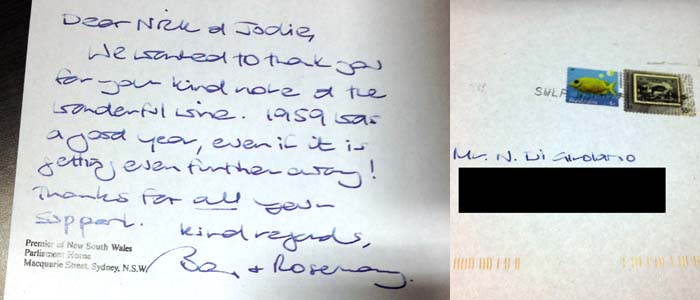 Dear Nick & Jodie,
We wanted to thank you
for your kind note & the
wonderful wine. 1959 was
a good year, even if it is
getting even further away!
Thanks for all your
support.
Kind regards,
Premier of New South Wales
Parliament House
Macquarie Street, Sydney, N.S.W.
Barry + Rosemary.
Australia
55c
Mr. N. Di Girolamo